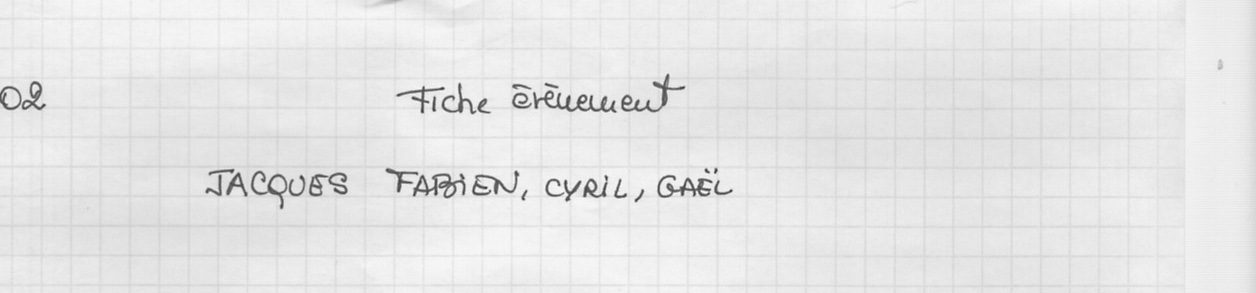 02 Fiche évènement
JACQUES FABIEN, CYRIL, GAËL